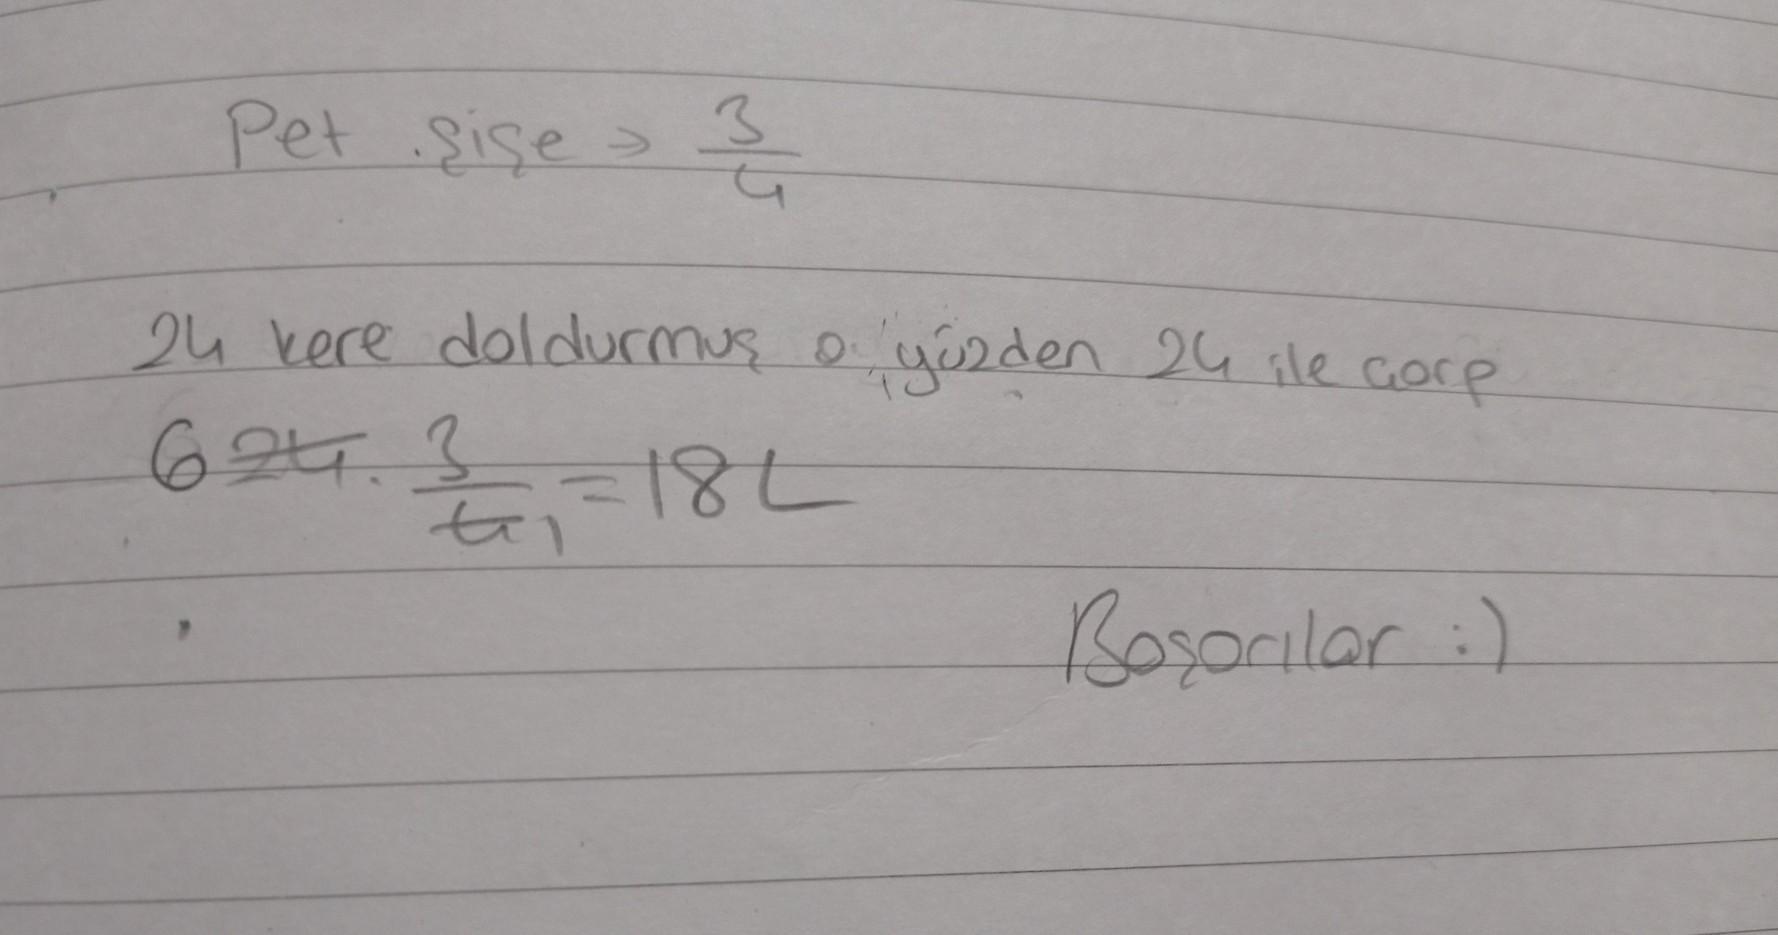 Pet şişe → 3/4
24 kere doldurmuş o yüzden 24 ile çarp
6 24 . 3/4 1 = 18 L
Başarılar :)